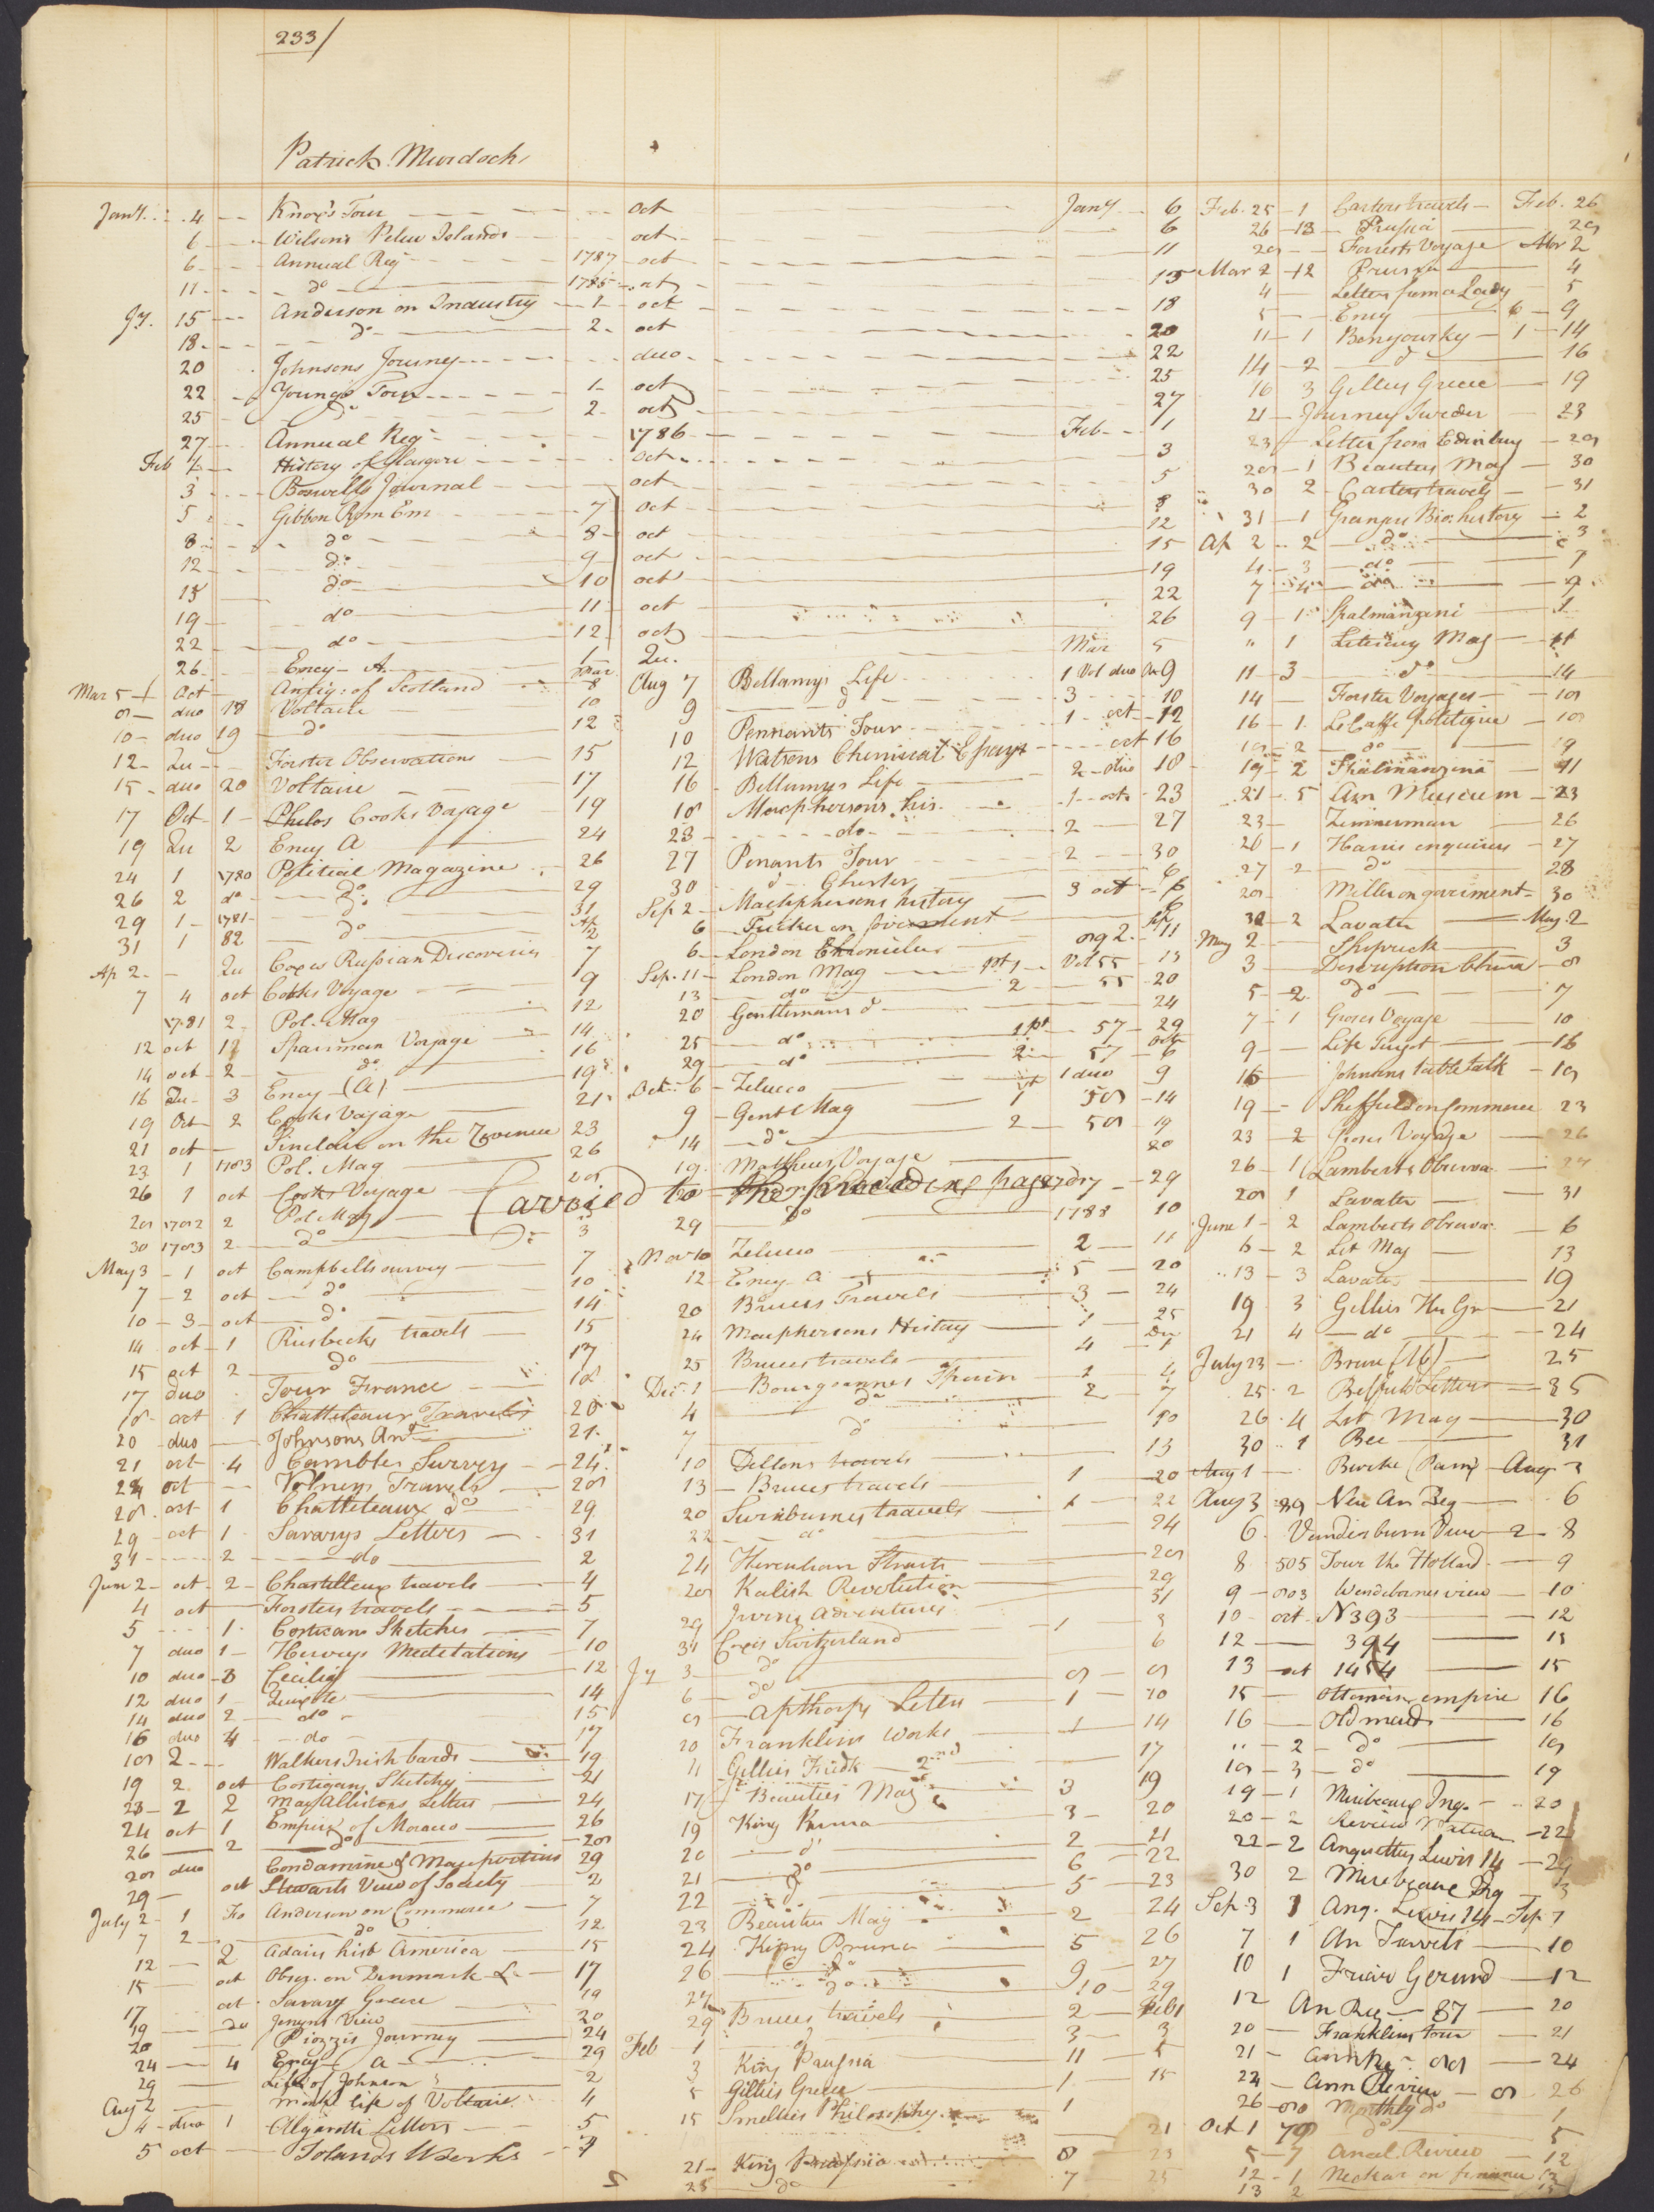 233/
Patrick Murdoch
Jany. 4 Knox's Tour oct Jany 6
6 Wilsons Pelew Islands oct 6
6 Annual Reg 1787 oct 11
11 do 1785 oct 15
Jy. 15 Anderson on Industry 1 oct 18
18 do 2 oct 20
20 Johnsons Journey duo 22
22 Youngs Tour 1 oct 25
25 do 2 oct 27
27 Annual Reg 1786 Feb 1
Feb 1 History of Glasgow oct 3
3 Boswells Journal oct 5
5 Gibbon Rom Em 7 oct 8
8 do 8 oct 12
12 do 9 oct 15
15 do 10 oct 19
19 do 11 oct 22
22 do 12 oct 26
26 Ency A. 1 Qu. Mar 5
Mar 5 1 Oct Antiq: of Scotland Mar 8
8 duo 18 Voltaire 10
10 duo 19 do 12
12 Qu Forster Observations 15
15 duo 20 Voltaire 17
17 Oct 1 Philos Cooks Voyage 19
19 Qu 2 Ency A 24
24 1 1780 Political Magazine 26
26 2 do do 29
29 1 1781 do 31
31 1 82 do Ap 2
Ap 2 Qu Coxes Russian Discoveries 7
7 4 oct Cooks Voyage 9
1781 2 Pol. Mag 12
12 oct 1 Sparrman Voyage 14
14 oct 2 do 16
16 Qu 3 Ency (A) 19
19 Oct 2 Cooks Voyage 21
21 oct Sinclair on the Revenue 23
23 1 1783 Pol. Mag 26
26 1 oct Cooks Voyage 28
28 1782 2 Pol Mag
30 1783 2 do 3
May 3 1 oct Campbells survey 7
7 2 oct do 10
10 3 oct do 14
14 oct 1 Riesbecks travels 15
15 oct 2 do 17
17 duo Tour France 18
18 oct 1 Chatteleaux Travels 20
20 duo Johnsons And 21
21 oct 4 Cambles Survey 24
24 oct Volneys Travels 28
28 oct 1 Chatteleaux do 29
29 oct 1 Savarys Letters 31
31 2 do 2
Jun 2 oct 2 Chastelleux travels 4
4 oct Forsters travels 5
5 1 Corsicans Sketches 7
7 duo 1 Herveys Meditations 10
10 duo 3 Cecilia 12
12 duo 1 Quixote 14
14 duo 2 do 15
16 duo 4 do 17
18 2 Walkers Irish bards 19
19 2 oct Costigans Sketches 21
23 2 2 May Allistons Letters 24
24 oct 1 Empire of Morocco 26
26 2 do 28
28 duo Condamine & Maupertuis 29
29 oct Stewarts View of Society 2
July 2 1 Fo Anderson on Commerce 7
7 2 do 12
12 2 Adairs hist America 15
15 oct Obser. on Denmark & 17
17 oct Savary Greece 19
19 do Jenyns View 20
20 Piozzis Journey 24
24 4 Ency (a 29
29 Life of Johnson 2
Aug 2 Monk life of Voltaire 4
4 duo 1 Algarotti Letters 5
5 oct Tolands Works 7
Aug 7 Bellamys Life 1 Vol duo Au 9
9 do 3 10
10 Pennants Tour 1 oct 12
12 Watsons Chemical Essays oct 16
16 Bellamys Life 2 duo 18
18 Macphersons his. 1 oct 23
23 do 2 27
27 Penants Tour 2 30
30 do Chester 6
Sep 2 Mackphersons history 3 oct 6
6 Tucker on Goverment 6
6 London Chronicles org 2. 11
Sep. 11 London Mag pt 1 Vol 55 13
13 do 2 55 20
20 Gentlemans do 24
25 do 1 pt 57 29
29 do 2 57 Octr 6
Oct. 6 Zeluco 1 duo 9
9 Gent Mag 1 58 14
14 do 2 58 19
19 Matthews Voyage 20
Carried to the preceeding page
29 do 1788 10
Nov 10 Zeluco 2 11
12 Ency A 5 20
20 Bruces Travels 3 24
24 Macphersons History 1 25
25 Bruces travels 4 Dec 1
Dec. 1 Bourgoannes Spain 1 4
4 do 2 7
7 do 10
10 Dellons travels 13
13 Bruces travels 1 20
20 Swinburnes travels 1 22
22 do 24
24 28
28 Kalish Revolution 29
29 Irvins Adventures 31
31 Coxes Switzerland 1 3
Jy 3 do 6
6 do 8 8
8 Apthorps Letters 1 10
10 Franklins Works 1 14
11 Gillies Fredk 2nd 17
17 Beauties Mag 3 19
19 King Prusia 3 20
20 do 2 21
21 do 6 22
22 do 5 23
23 Beauties Mag 2 24
24 King Prusia 5 26
26 do 9 27
27 do 10 29
29 Bruces travels 2 Feb 1
Feb 1 do 3 3
3 King Prussia 11 5
5 Gillies Greece 1 15
15 Smellies Philosophy 1 21
21 King Prussia 8 25
25 do 7 25
Feb. 25 1 Carters travels Feb. 26
26 13 Prussia 28
28 Forrests Voyage Mar 2
Mar 2 12 Prussia 4
4 Letters from a Lady 5
5 Ency 6 9
11 1 Benyowsky 1 14
14 2 do 16
16 3 Gillies Greece 19
21 Journey Sweden 23
23 Letter from Edinbury 28
28 1 Beauties Mag 30
30 2 Carters travels 31
31 1 Grangers Bio: history 2
Ap 2 2 do 3
4 3 do 7
7 4 do 9
9 1 Spalmanzeni
" 1 Literary Mag 11
11 3 do 14
14 Forster Voyages 18
16 1 LeCaffe politique 18
18 2 do 19
19 2 Spalmanzena 21
21 5 Am Museum 23
23 Zimmerman 26
26 1 Harris enquiries 27
27 2 do 28
28 Miller on goverment 30
30 2 Lavater May 2
May 2 Shipwreck 3
3 Description China 8
5 2 do 7
7 1 Groses Voyage 10
9 Life Turgot 16
16 Johnsons table talk 19
19 Sheffield on Commerce 23
23 2 Groses Voyage 26
26 1 Lamberts Observa
28 1 Lavater 31
June 1 2 Lamberts Observa 6
6 2 Lit Mag 13
13 3 Lavater 19
19 3 Gillies His Gr 21
21 4 do 24
July 23 Bruce (16) 25
25 2 Belfield Letters 25
26 4 Lit Mag 30
30 1 Bee 31
Aug 1 Burke (Pam) Aug 3
Aug 3 89 New An Reg 6
6 Venderburn View 2 8
8 505 Tour tho Holland 9
9 803 Wendeborns view 10
10 oct N 393 12
12 394 13
13 oct 1454 15
15 Ottoman empire 16
16 Old maids 16
" 2 do 18
18 3 do 19
19 1 Miribeaux Ing. 20
20 2 Review 22
22 2 Anquettys Lewis 14 29
30 2 Mirebeaue 3
Sep. 3 1 Anq. Lewis 14 Sep 7
7 1 An Travels 10
10 1 Friar Gerund 12
12 An Reg 87 20
20 Franklins tour 21
21 Ann Reg. 88 24
24 Ann Review 8 26
26 80 Monthly do 1
Oct 1 79 do 5
5 7 Anal. Review 12
12 1 Neckar on finance 13
13 2 15